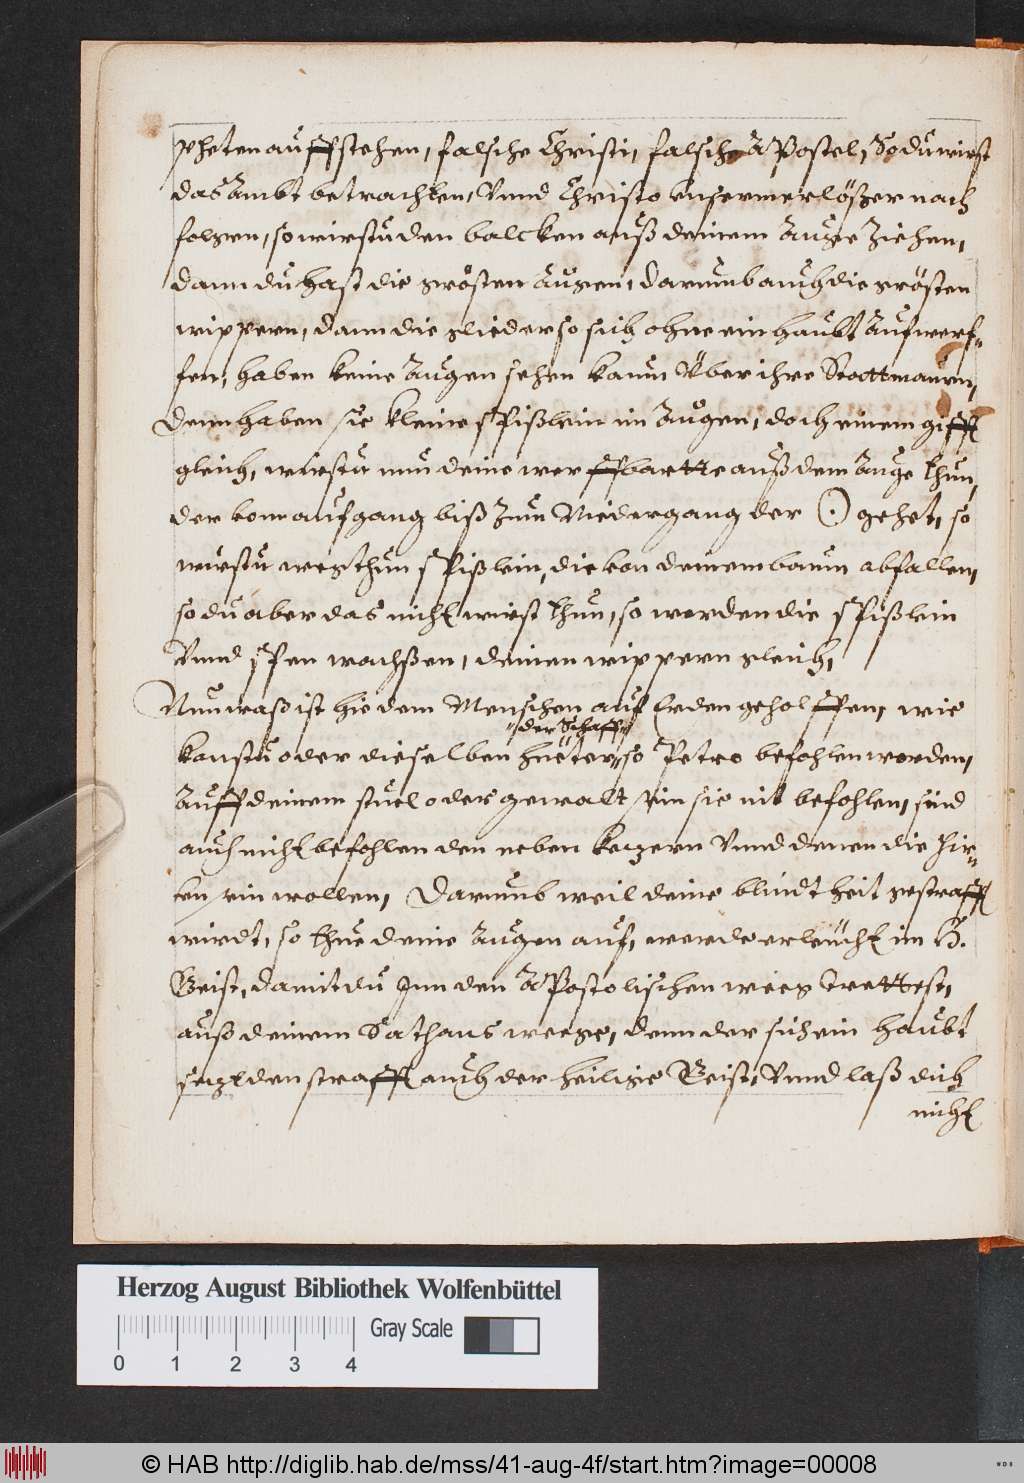 pheten auffstehen, falsche Christi, falsche Apostel, So du wirst
das Ambt betrachten, Vnnd Christo vnserm erlößer nach
folgen, so wirstu den balcken auß deinem Auge ziehen,
dann du hast die grösten Augen, darumb auch die grösten
wippern, dann die glieder so sich ohne ein haubt Aufwerf-
fen, haben keine Augen sehen kaum Vber ihre Stattmauren,
Denn haben sie kleine spißlein im Augen, doch einem gifft
gleich, wirstu nun deine werffbartte auß dem Auge thun,
der vom aufgang biß zum Niedergang der ☉ gehet, so
wirstu weg thun spißlein, die von deinem baum abfallen,
so du aber das nicht wirst thun, so werden die spißlein
Vnnd wachßen, deinen wippern gleich,
Nun waß ist hie dem Menschen auf Erden geholffen, wie
"der Schaffe"
kanstu oder dieselben hüeter, so Petro befohlen worden,
Auff deinem stuel oder gewalt sein sie nit befohlen, sind
auch nicht befohlen den neben ketzern Vnnd denen die hir-
ten sein wollen, Darumb weil deine blindtheit gestrafft
wirdt, so thue deine Augen auf, werde erleucht im H.
Geist, damit du Inn den Apostolischen weeg trettest,
auß deinem Sathans weege, denn der sich ein haubt
setzt den strafft auch der heilige Geist, Vnnd laß dich
nicht
Herzog August Bibliothek Wolfenbüttel
Gray Scale
0 1 2 3 4
© HAB http://diglib.hab.de/mss/41-aug-4f/start.htm?image=00008